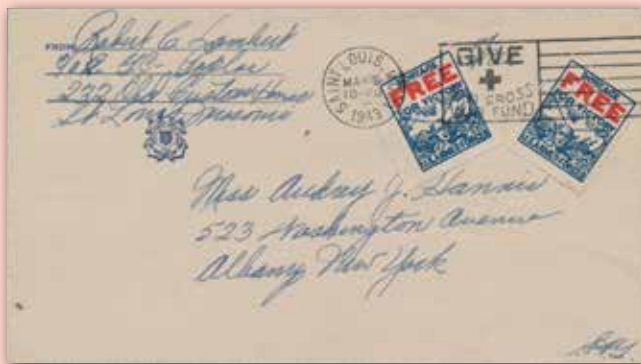 FROM Robert C. Lambert
232 Old Custom House
St Louis Missouri
SAINT LOUIS
MAR
1943
GIVE
+
CROSS
FUND
FREE
FREE
Miss Audrey J. Hannis
523 Washington Avenue
Albany New York